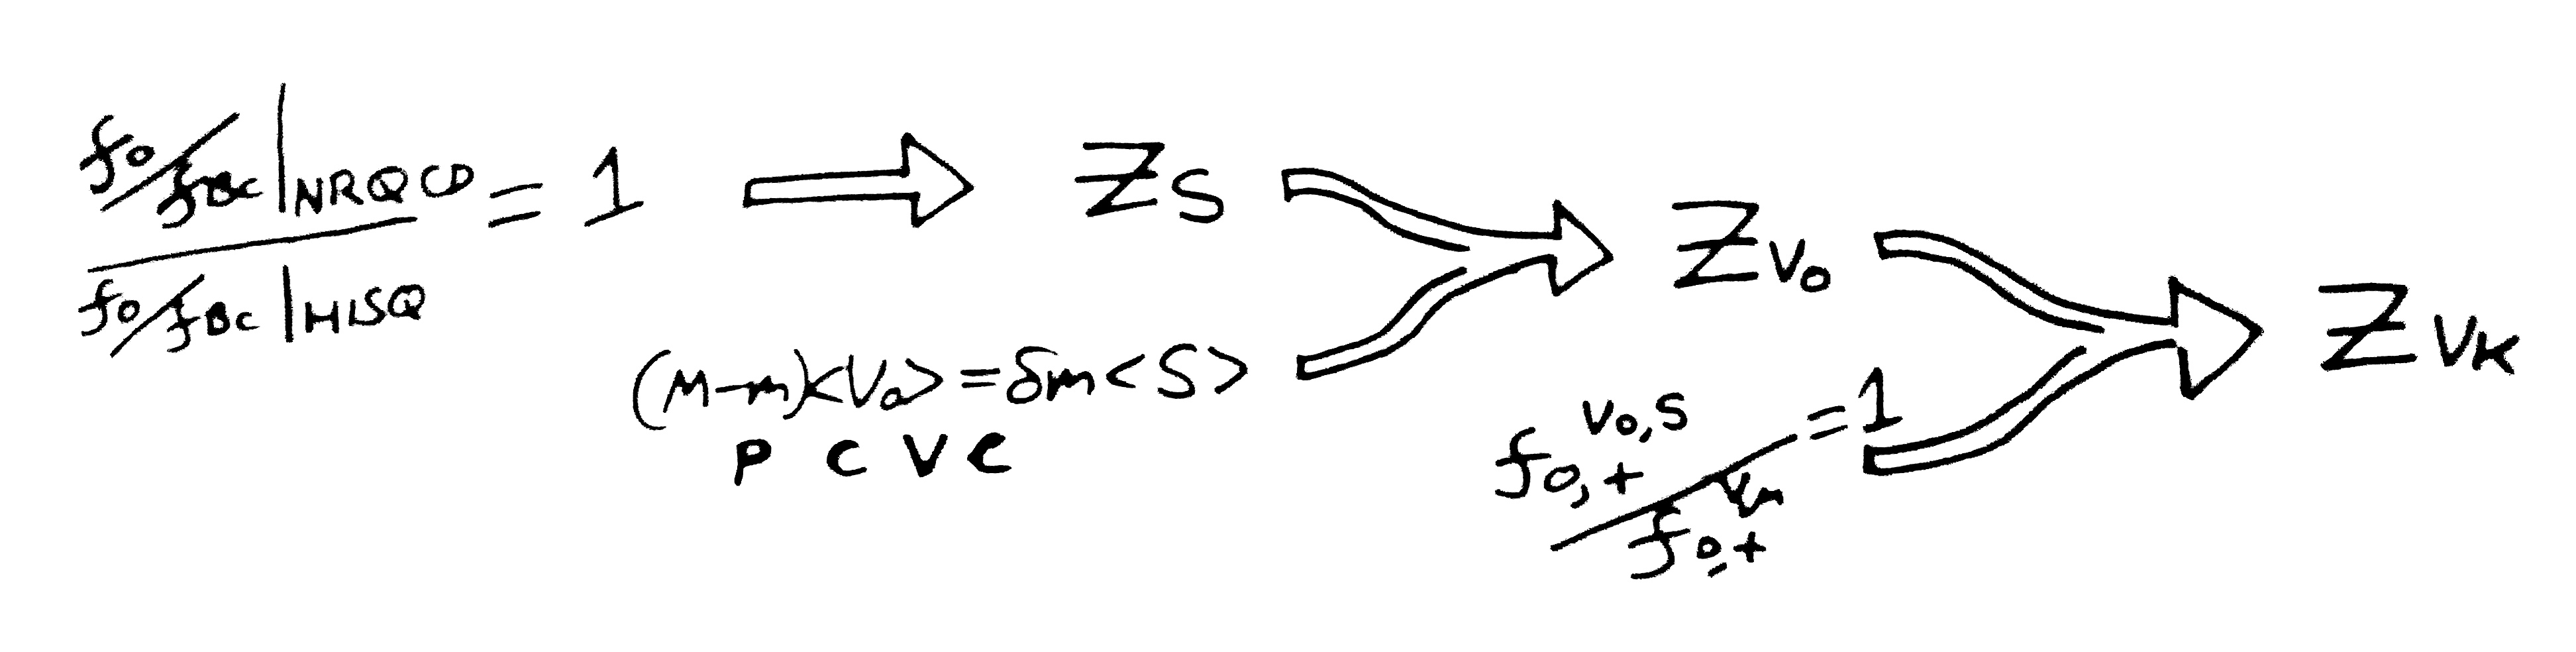 f0/fBc|NRQCD
f0/fBc|HISQ
= 1
ZS
(M-m)<V0> = δm<S>
PCVC
ZV0
f0,+ V0,S
f0,+
= 1
ZVK